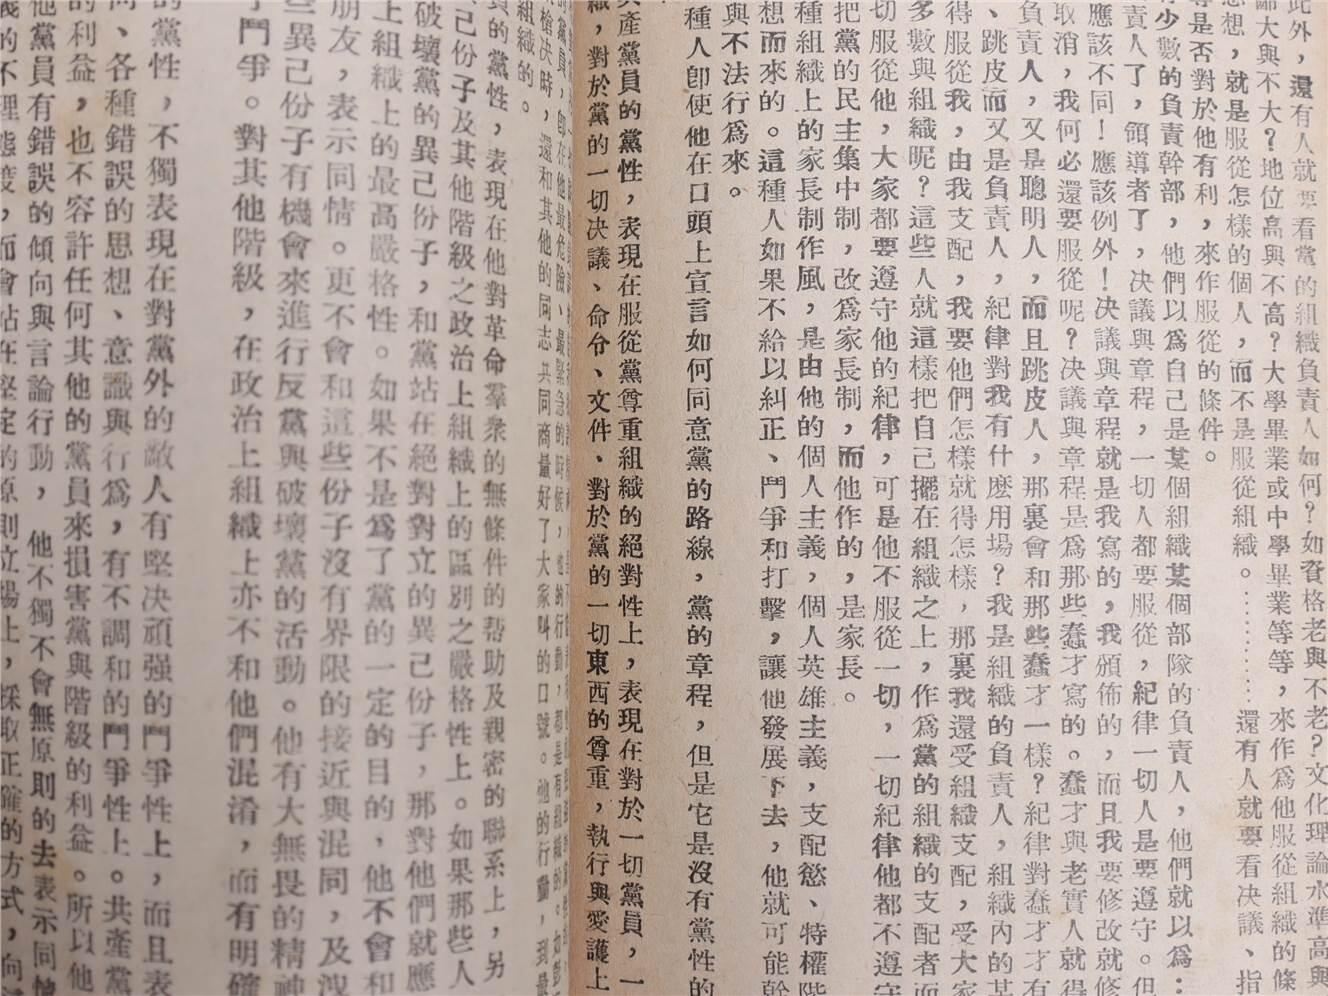 此外，還有人就要看黨的組織負責人如何？如資格老與不老？文化理論水準高與
大與不大？地位高與不高？大學畢業或中學畢業等等，來作爲他服從組織的條
思想，就是服從怎樣的個人，而不是服從組織。…………還有人就要看决議、指
等是否對於他有利，來作服從的條件。
有少數的負責幹部，他們以爲自己是某個組織某個部隊的負責人，他們就以爲：
責人了，領導者了，决議與章程，一切人都要服從，紀律一切人是要遵守。但
應該不同！應該例外！决議與章程就是我寫的，我頒佈的，而且我要修改就修
取消，我何必還要服從呢？决議與章程是爲那些蠢才寫的。蠢才與老實人就得
負責人，又是聰明人，而且跳皮人，那裏會和那些蠢才一樣？紀律對蠢才才有
、跳皮而又是負責人，紀律對我有什麽用場？我是組織的負責人，組織內的某
得服從我，由我支配，我要他們怎樣就得怎樣，那裏我還受組織支配，受大家
多數與組織呢？這些人就這樣把自己擺在組織之上，作爲黨的組織的支配者而
切服從他，大家都要遵守他的紀律，可是他不服從一切，一切紀律他都不遵守
把黨的民主集中制，改爲家長制，而他作的，是家長。
種組織上的家長制作風，是由他的個人主義，個人英雄主義，支配慾、特權階
想而來的。這種人如果不給以糾正、鬥爭和打擊，讓他發展下去，他就可能幹
與不法行爲來。
種人卽使他在口頭上宣言如何同意黨的路線，黨的章程，但是它是沒有黨性的
共產黨員的黨性，表現在服從黨尊重組織的絕對性上，表現在對於一切黨員，一
織，對於黨的一切决議、命令、文件、對於黨的一切東西的尊重，執行與愛護上
黨員，卽在他最危險、最緊急的時候，他的行動，都是有組織的。
槍决時，還和其他的同志共同商量好了大家呌的口號。他的行動，到最
組織的。
員的黨性，表現在他對革命羣衆的無條件的帮助及親密的聯系上，另
己份子及其他階級之政治上組織上的區別之嚴格性上。如果那些人
破壞黨的異己份子，和黨站在絕對對立的異己份子，那對他們就應
上組織上的最高嚴格性。如果不是爲了黨的一定的目的，他不會和
朋友，表示同情。更不會和這些份子沒有界限的接近與混同，及洩
些異己份子有機會來進行反黨與破壞黨的活動。他有大無畏的精神
鬥爭。對其他階級，在政治上組織上亦不和他們混淆，而有明確
的黨性，不獨表現在對黨外的敵人有堅决頑强的鬥爭性上，而且表
向、各種錯誤的思想、意識與行爲，有不調和的鬥爭性上。共產黨
的利益，也不容許任何其他的黨員來損害黨與階級的利益。所以他
他黨員有錯誤的傾向與言論行動，他不獨不會無原則的去表示同情
的不理態度，而會站在堅定的原則立場上，採取正確的方式，向